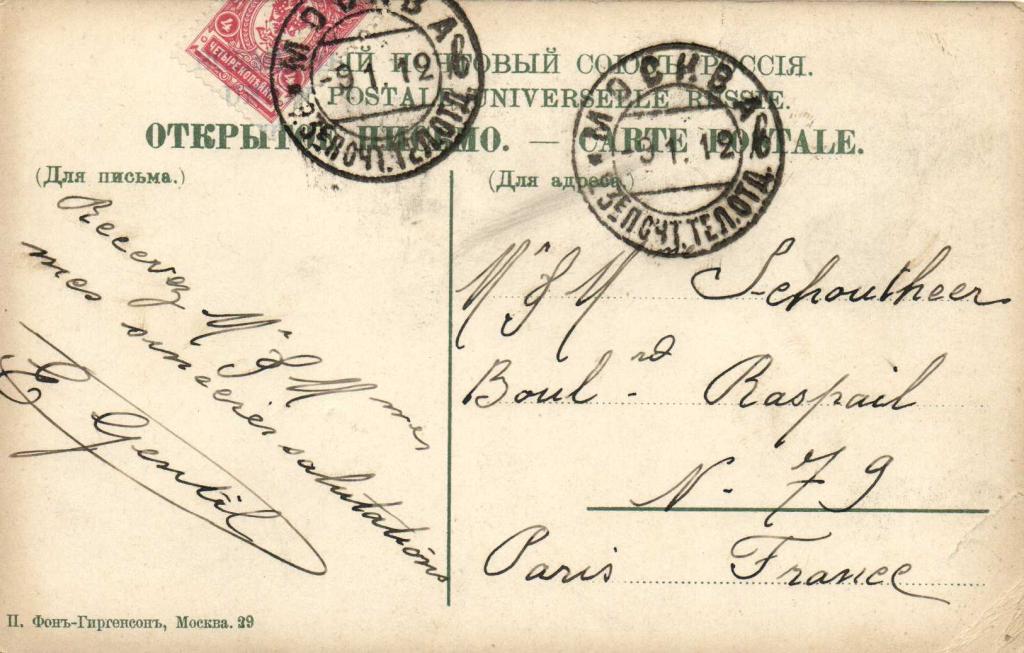 4
ЧЕТЫРЕ КОПѢЙКИ
МОСКВА
-9.1.12
ПОЧТ.ТЕЛ.ОТД.
МОСКВА
-9.1.12
ПОЧТ.ТЕЛ.ОТД.
ЫЙ ПОЧТОВЫЙ СОЮЗЪ РОССІЯ.
POSTALE UNIVERSELLE RUSSIE.
ОТКРЫТОЕ ПИСЬМО. — CARTE POSTALE.
(Для письма.)
(Для адреса.)
Recevez Mr & Mme
mes sincères salutations
E Gentil
M & M Schoutheer
Boul-rd Raspail
N- 79
Paris France
П. Фонъ-Гиргенсонъ, Москва. 29